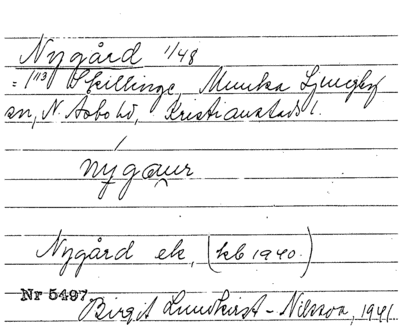 Nygård 1/48
= 1/13 Skillinge, Munka Ljungby
sn, N. Åsbo hd, Kristianstads l.
nygaur
Nygård ek, (kb 1940.)
Nr 5497
Birgit Lundkvist-Nilsson, 1941